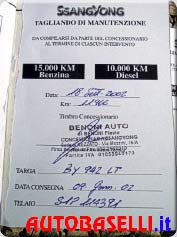 SSANGYONG
TAGLIANDO DI MANUTENZIONE
DA COMPILARSI DA PARTE DEL CONCESSIONARIO
AL TERMINE DI CIASCUN INTERVENTO
15.000 KM Benzina
10.000 KM Diesel
Data: 18 Sett 2002
Km.: 11966
Timbro Concessionario
BENONI AUTO
di BENONI Flavio
CONCESSIONARIA
SSANGYONG
TARGA BY 942 LT
DATA CONSEGNA 09 Genn. 02
TELAIO
AUTOBASELLI.it